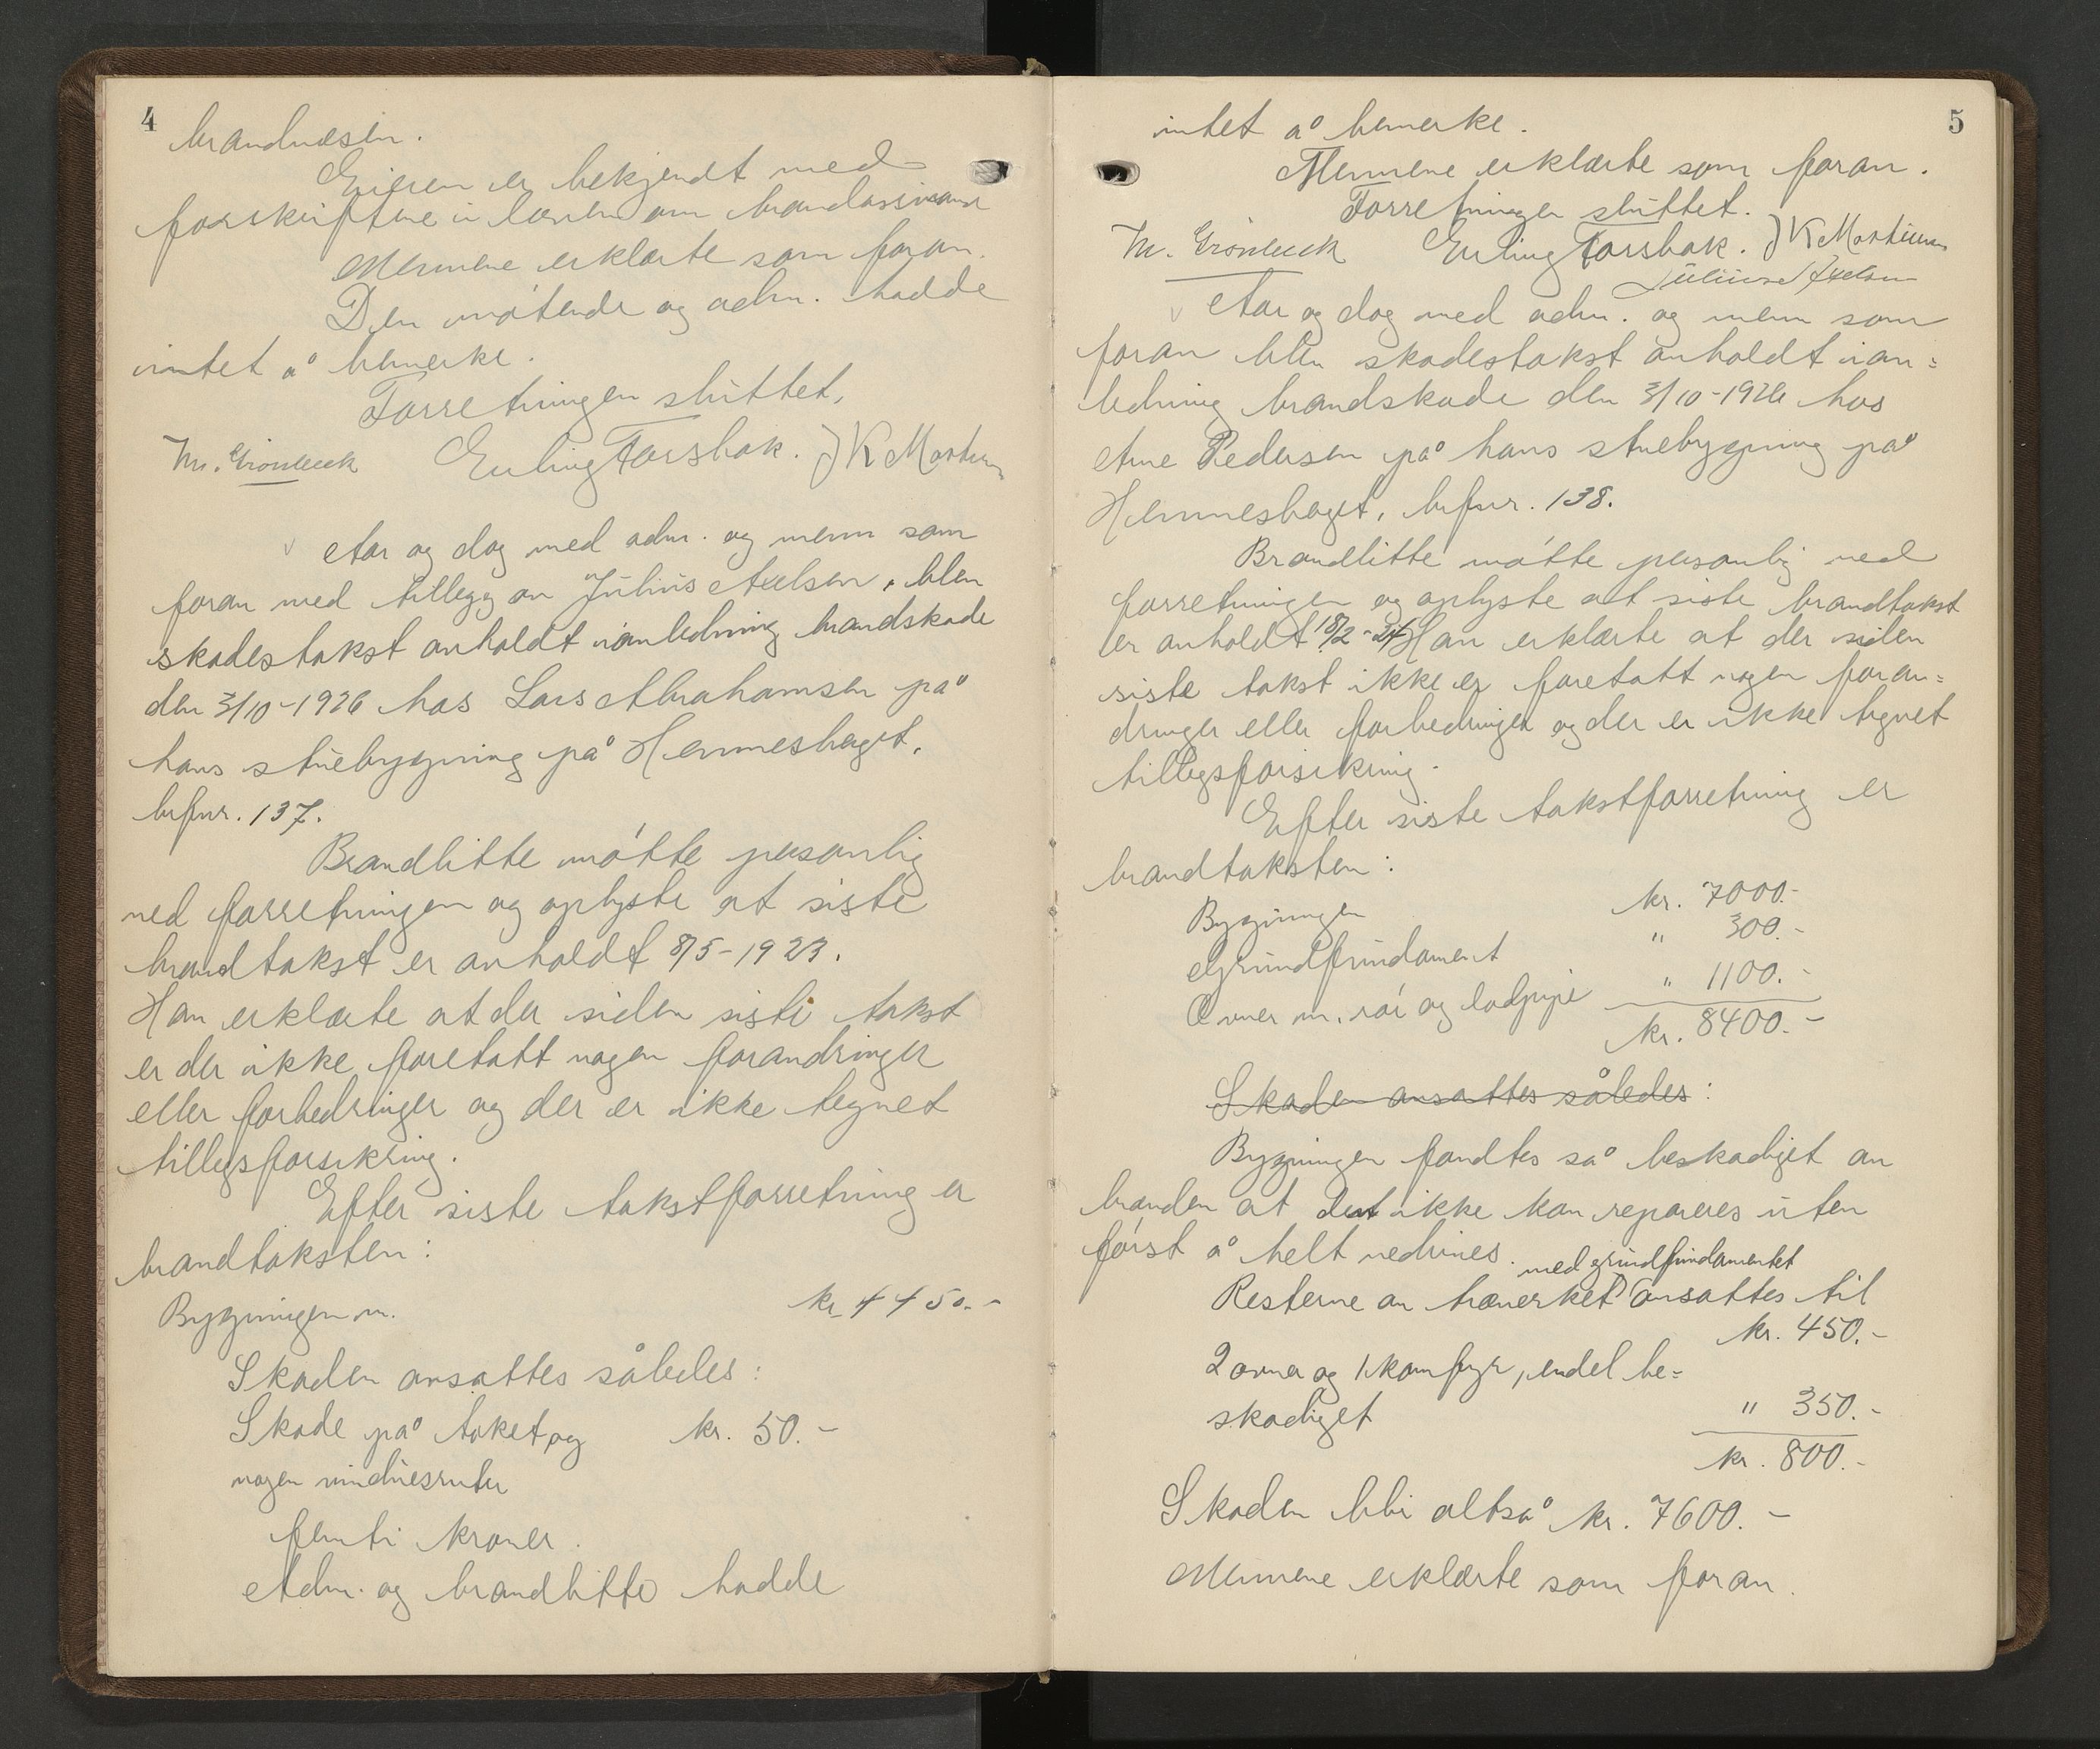 4
brandvæsen.
Eieren er bekjendt med
forskriftene i loven om brandassurance
Mennene erklærte som foran.
Den møtende og adm. hadde
intet å bemerke.
Forretningen sluttet.
M. Grønbeck Erling Forsbak. J K Martinsen
Aar og dag med adm. og menn som
foran med tillegg av Julius Axelsen, blev
skadestakst avholdt i anledning brandskade
den 3/10-1926 hos Lars Abrahamsen på
hans stuebygning på Hemneshaget,
brfnr. 137.
Brandlitte møtte personlig
ved forretningen og oplyste at siste
brandtakst er avholdt 8/5-1923.
Han erklærte at der siden siste takst
er der ikke foretatt nogen forandringer
eller forbedringer og der er ikke tegnet
tillegsforsikring.
Efter siste takstforretning er
brandtaksten:
Bygningen m. kr 4450.-
Skaden ansattes således:
Skade på taket og kr. 50.-
nogen vinduesruter
femti kroner.
Adm. og brandlitte hadde
5
intet å bemerke.
Mennene erklærte som foran.
Forretningen sluttet.
M. Grønbeck Erling Forsbak. J K Martinsen
Julius Axelsen
Aar og dag med adm. og menn som
foran blev skadestakst avholdt i an=
ledning brandskade den 3/10-1926 hos
Arne Pedersen på hans stuebygning på
Hemneshaget, brfnr. 138.
Brandlitte møtte personlig ved
forretningen og oplyste at siste brandtakst
er avholdt 18/2-24 Han erklærte at der siden
siste takst ikke er foretatt nogen foran=
dringer eller forbedringer og der er ikke tegnet
tillegsforsikring.
Efter siste takstforretning er
brandtaksten:
Bygningen kr. 7000.-
Grundfundament " 300.-
Ovner m. rør og lodpipe " 1100.-
kr. 8400.-
Skaden ansattes således:
Bygningen fandtes så beskadiget av
branden at den ikke kan repareres uten
først å helt nedrives.
med grundfundamentet
Resterne av træverket ansattes til
kr. 450.-
2 ovner og 1 komfyr, endel be=
skadiget " 350.-
kr. 800.-
Skaden blir altså kr. 7600.-
Mennene erklærte som foran.